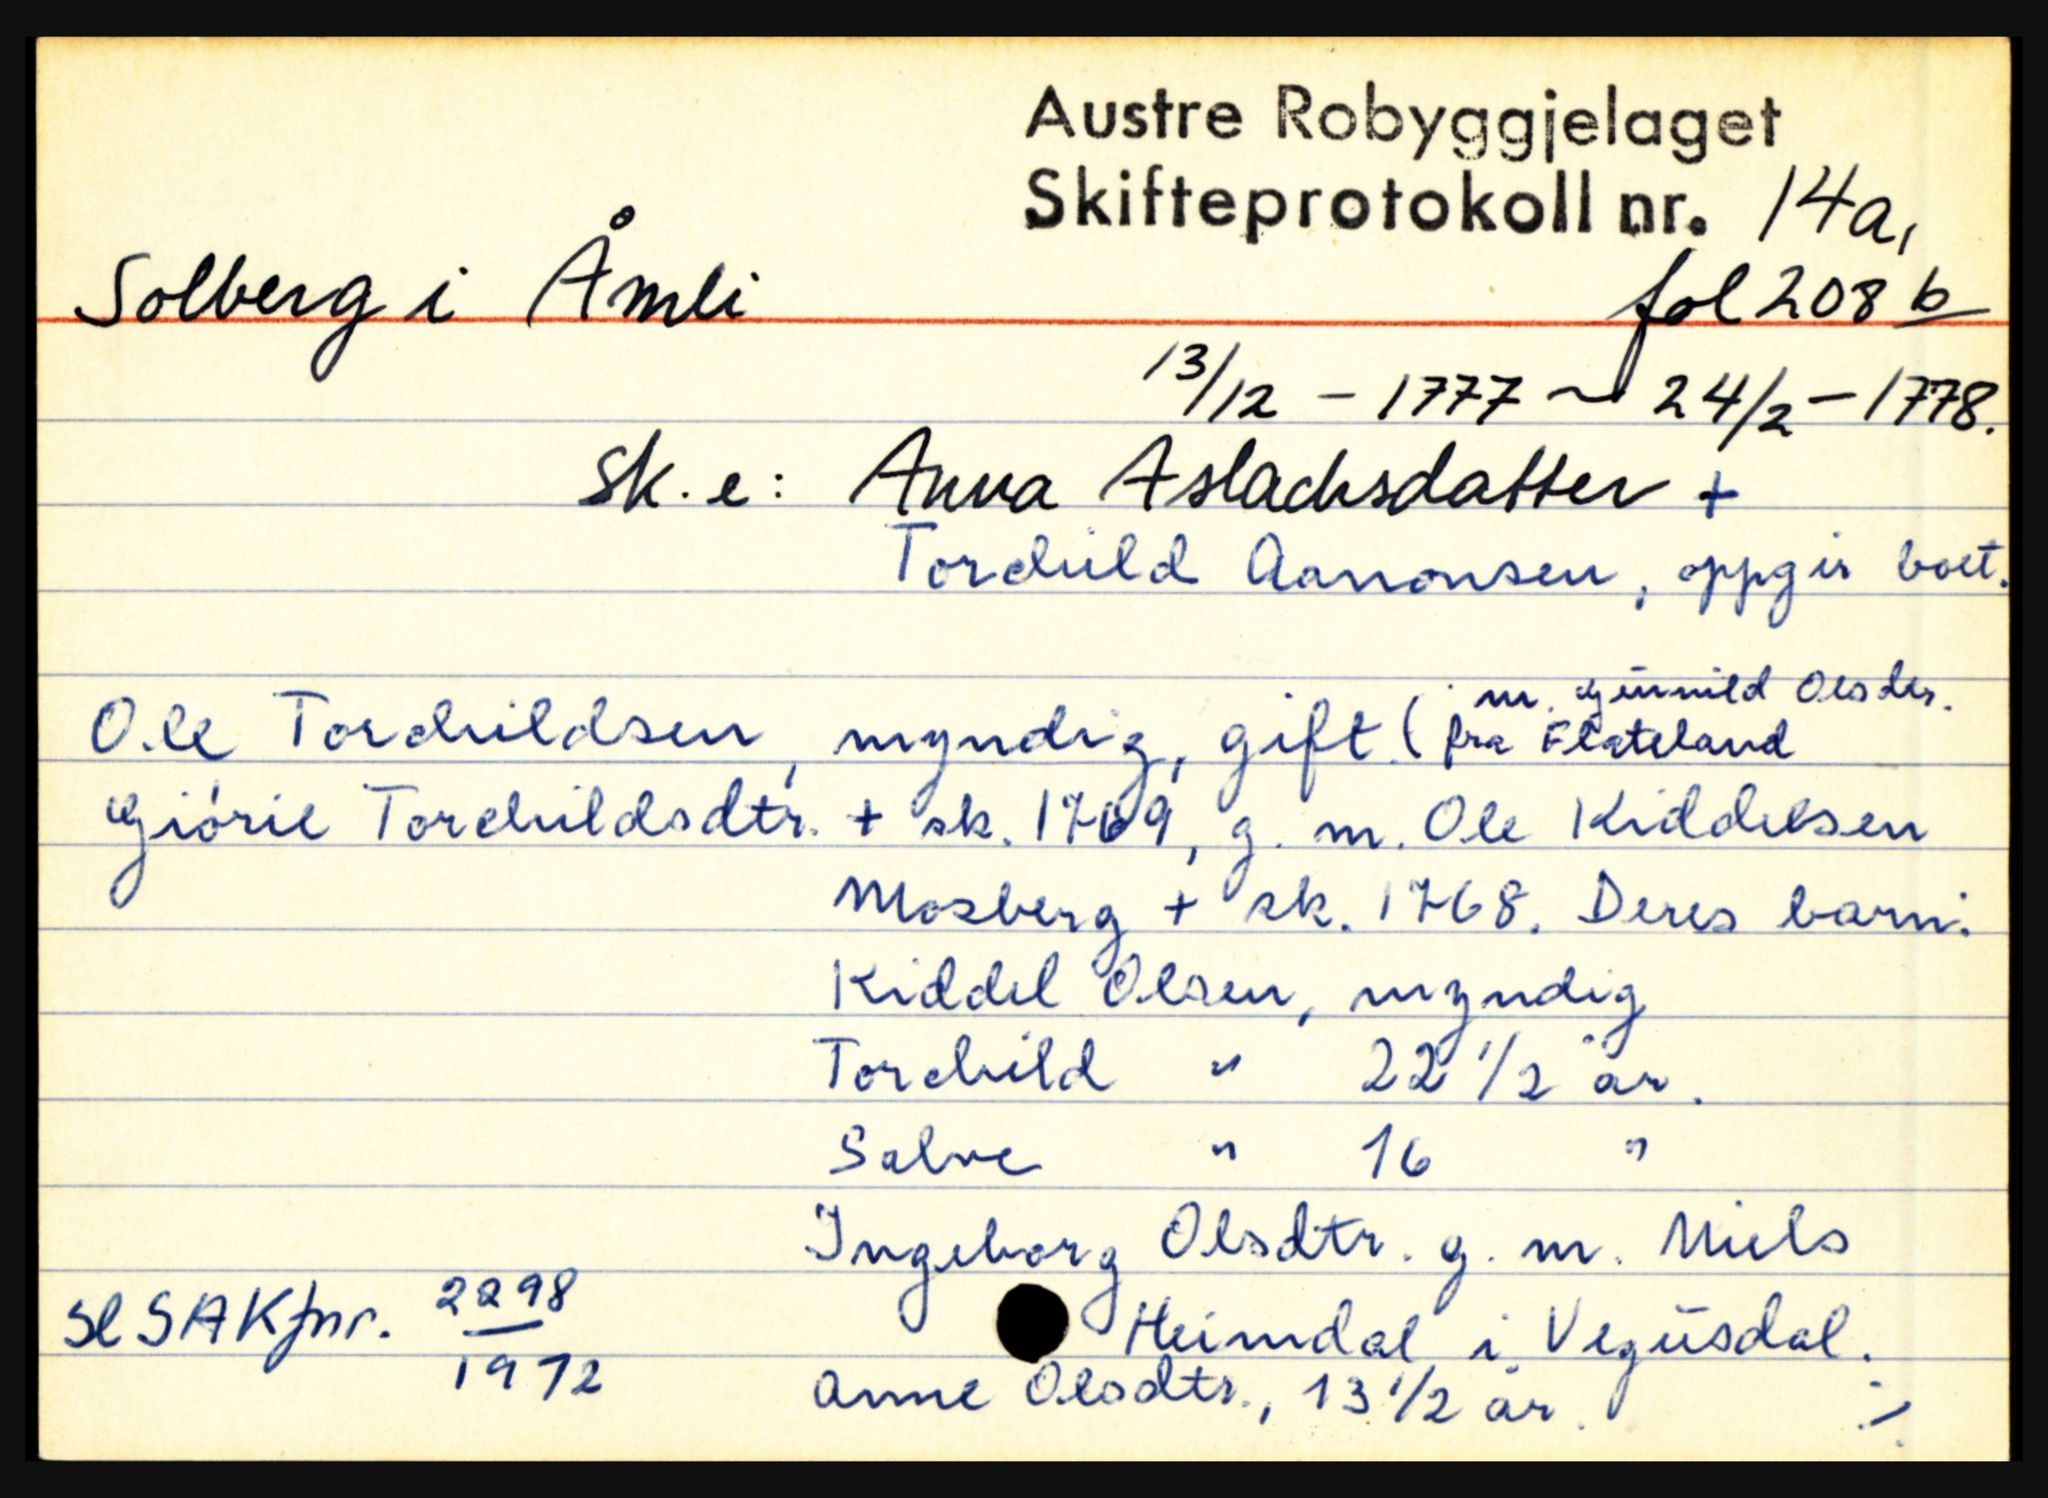 Austre Robyggjelaget
Skifteprotokoll nr. 14a,
Solberg i Åmli fol 208 b
13/12 - 1777 ~ 24/2 - 1778.
Sk. e: Anna Aslachsdatter +
Torchild Aanonsen, oppgir boet.
m. Günnild Olsdtr.
Ole Torchildsen, myndig, gift. ( fra Flateland
Giörie Torchildsdtr. + sk. 1769, g. m. Ole Kiddelsen
Mosberg + sk. 1768. Deres barn:
Kiddel Olsen, myndig
Torchild " 22 1/2 år.
Salve " 16 "
Ingeborg Olsdtr. g. m. Niels
Heimdal i Vegüsdal.
Sl SAK jnr. 2298
1972
Anne Olsdtr., 13 1/2 år.